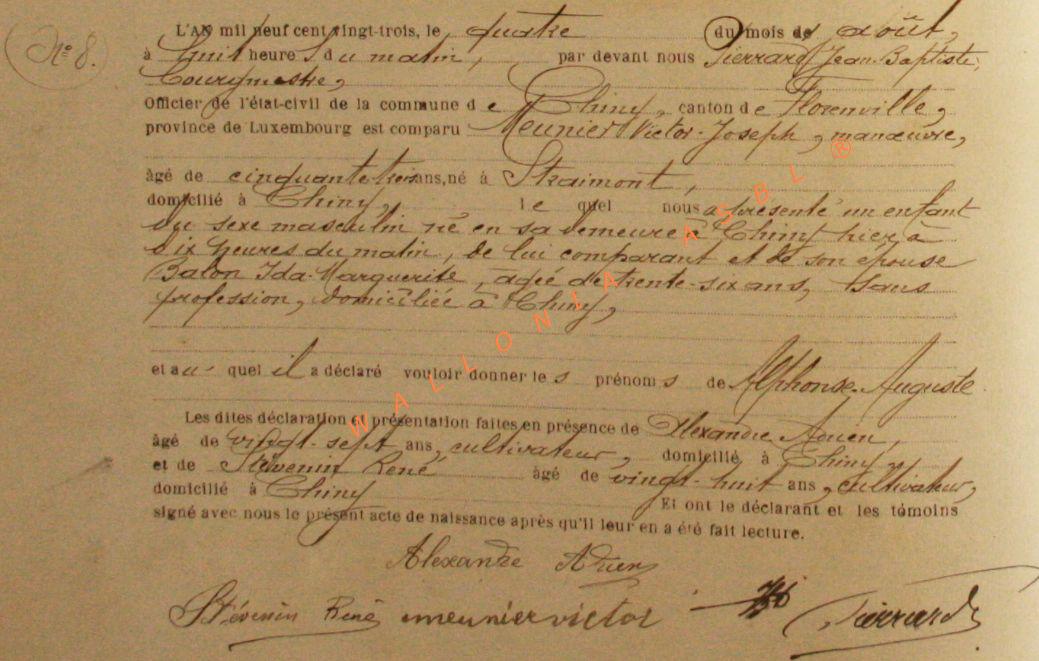 N° 8.
L'AN mil neuf cent vingt-trois, le quatre du mois de août,
à huit heure s du matin, par devant nous Pierrard Jean-Baptiste,
bourgmestre,
Officier de l'état-civil de la commune de Chiny, canton de Florenville,
province de Luxembourg est comparu Meunier Victor-Joseph, manœuvre,
âgé de cinquante trois ans, né à Straimont,
domicilié à Chiny, le quel nous a présenté un enfant
du sexe masculin né en sa demeure à Chiny hier à
six heures du matin, de lui comparant et de son épouse
Balon Ida-Marguerite, âgée de trente-six ans, sans
profession, domiciliée à Chiny,
et au quel il a déclaré vouloir donner les prénoms de Alphonse-Auguste
Les dites déclaration et présentation faites en présence de Alexandre
âgé de vingt-sept ans, cultivateur, domicilié à Chiny
et de Stévenin René âgé de vingt-huit ans, cultivateur,
domicilié à Chiny Et ont le déclarant et les témoins
signé avec nous le présent acte de naissance après qu'il leur en a été fait lecture.
Alexandre
Stévenin René meunier victor Pierrard
WALLONIA ASBL ®